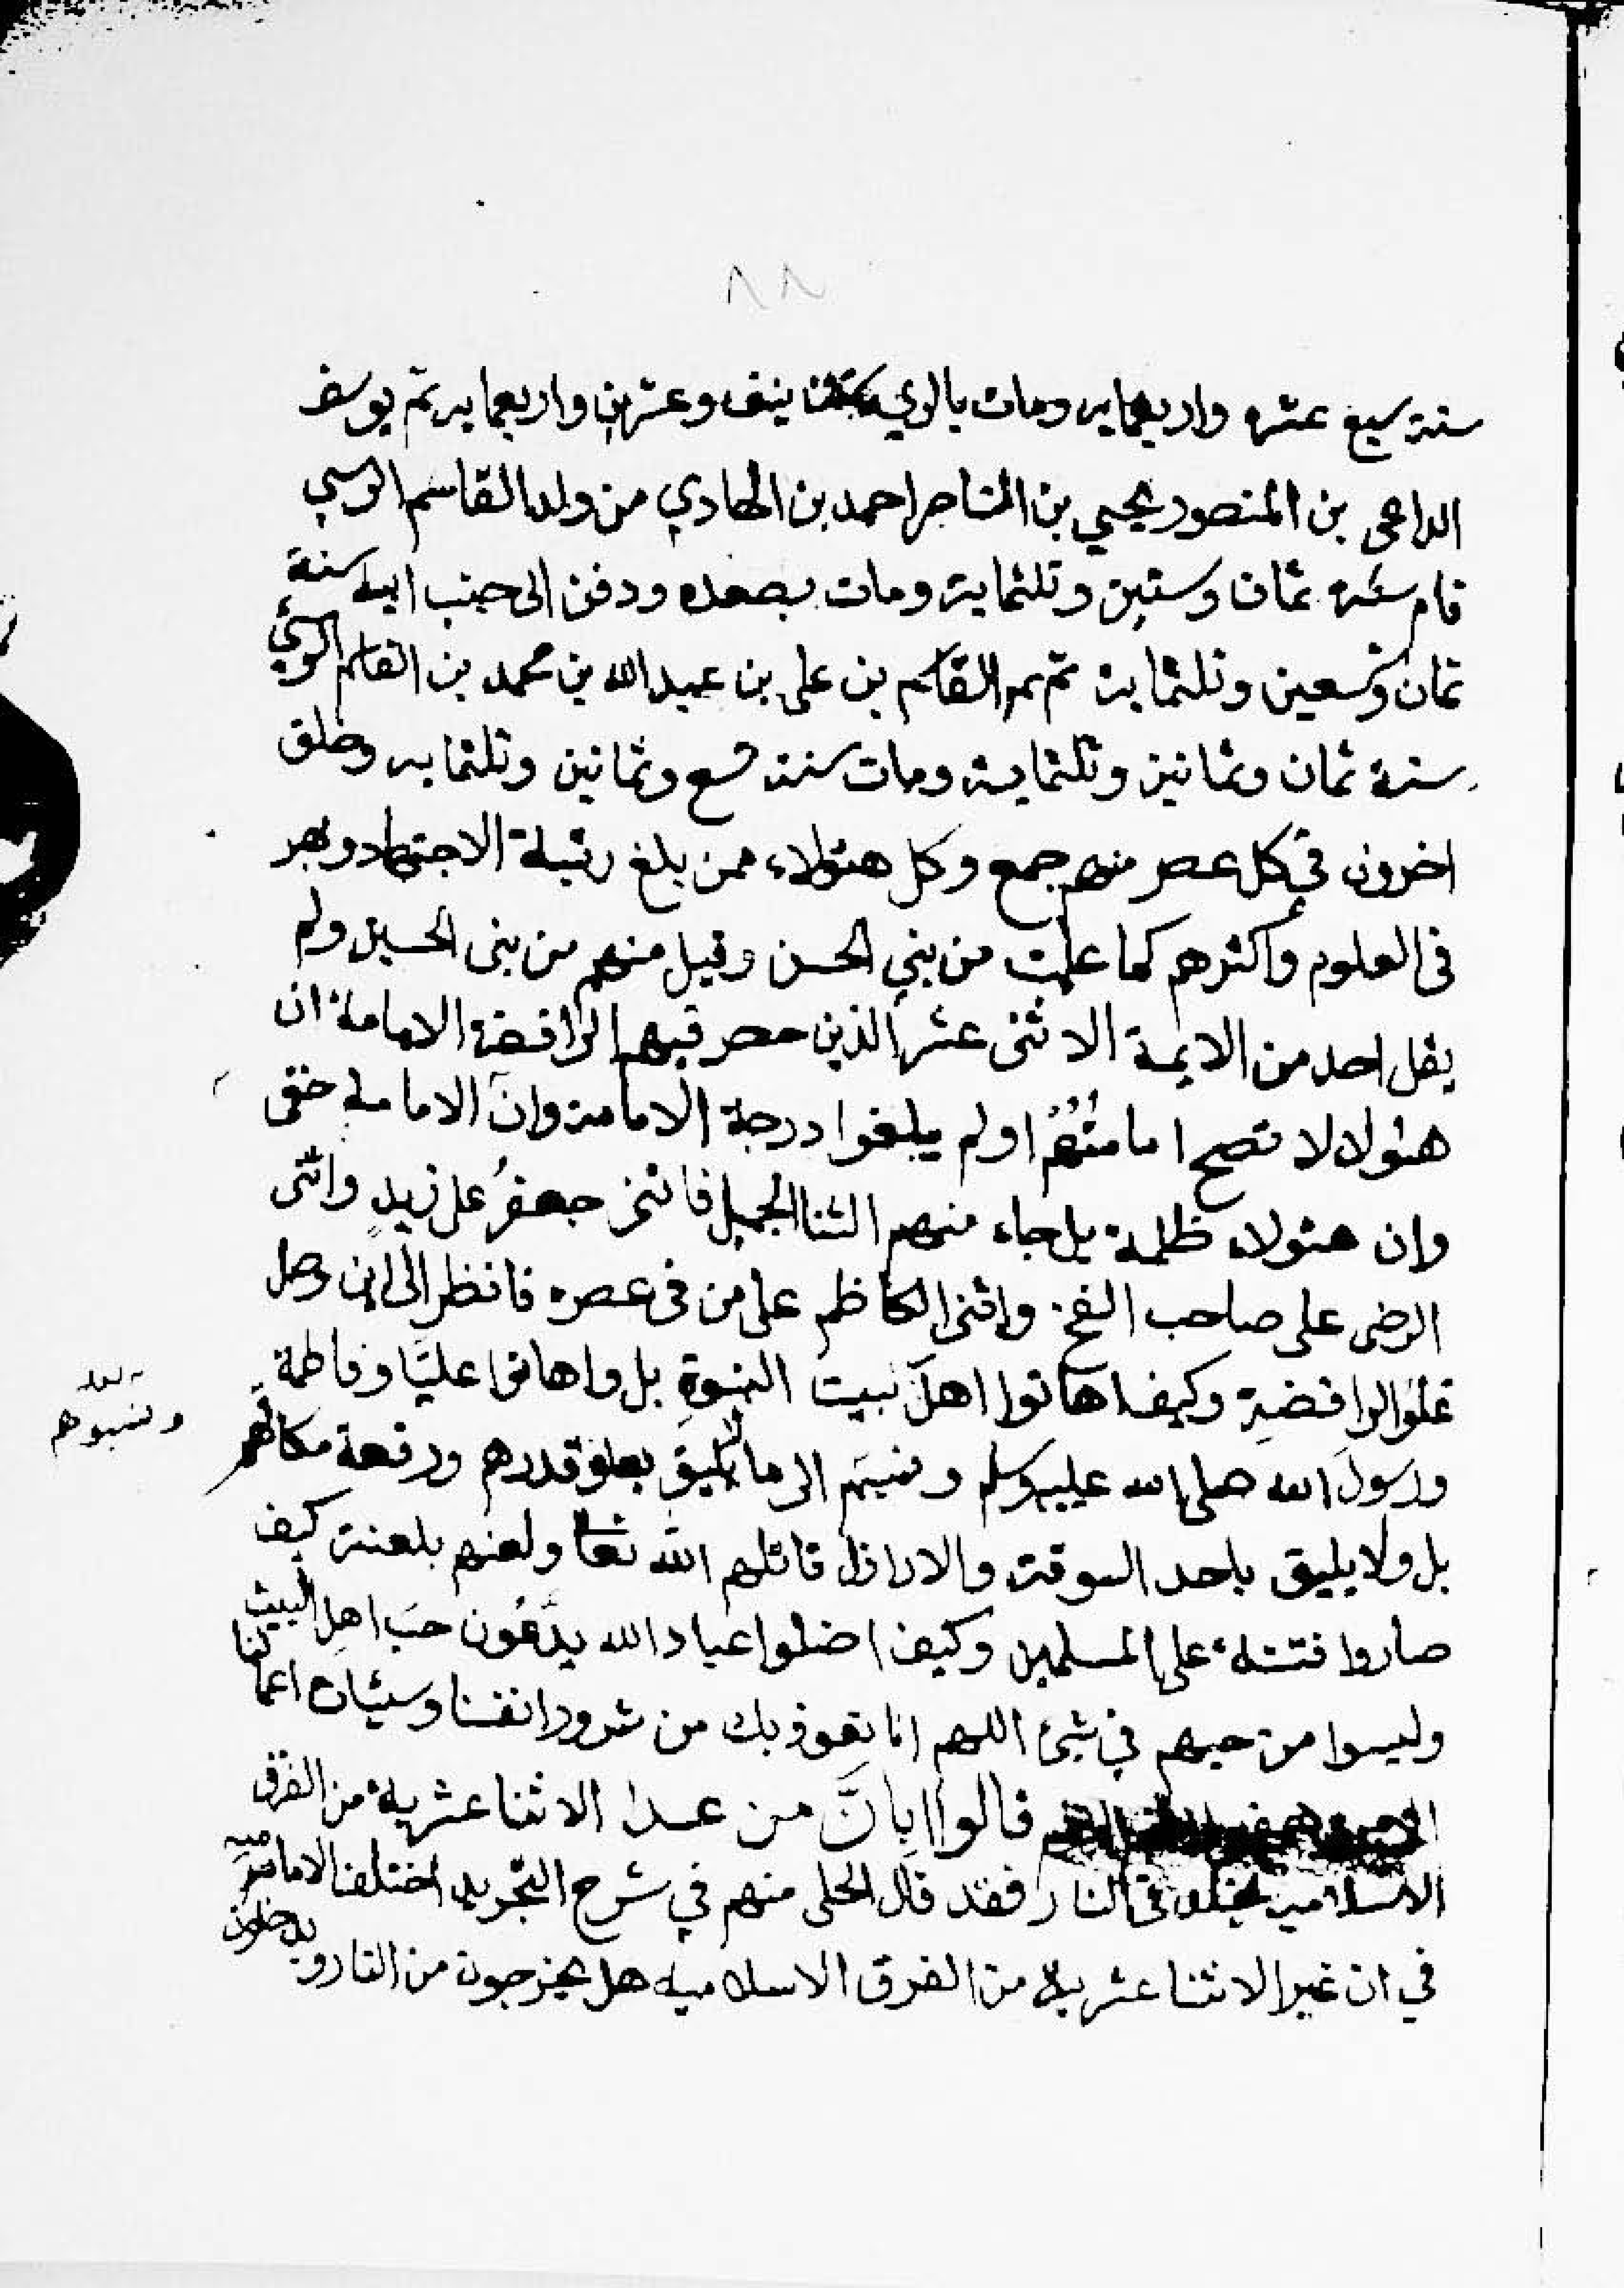 ٨٨
سنة سبع عشره واربعمايه ومات بالري نيف وعشرين واربعمايه ثم يوسف
الداعى بن المنصور يحيي بن الناصر احمد بن الهادي من ولد القاسم الرسي
قام سنه ثمان وستين وثلثماية ومات بصعده ودفن الى جنب ابيه سنة
ثمان وتسعين وثلثماية ثم القاسم بن على بن عبدالله بن محمد بن القاسم الرسي
سنة ثمان وثمانين وثلثماية ومات سنة تسع وثمانين وثلثمايه وخلق
اخرون في كل عصر منهم جمع وكل هئولاء ممن بلغ رتبة الاجتهاد وبهر
فى العلوم وأكثرهم كما علمت من بني الحسن وقيل منهم من بنى الحسين ولم
يقل احد من الايمة الاثنى عشر الذين حصر فيهم الرافضة الامامة ان
هئولا لا تصح امامتُهُم اولم يبلغوا درجة الامامة وانّ الامامة حقى
وان هئولاء ظلمة بل جاء منهم الثنا الجميل فاثنى جعفرُ على زيدٍ واثنى
الرضى على صاحب الفخ واثنى الكاظم على من فى عصره فانظر الى اين وصل
غلوّ الرافضةِ وكيف اهانوا اهلَ بيت النبوةِ بل واهانوا عليّا وفاطمة
ورسولَ الله صلى الله عليه وسلم الى ما لا يليق بعلو قدرهم ورفعة مكانهم
ونسبوهم
بل ولا يليق باحد السوقة والاراذل قاتلهم الله تعا ولعنهم بلعنته كيف
صاروا فتنة على المسلمين وكيف اضلوا عباد الله يدّعُون حبَ اهلِ البيت
وليسوا من حبهم في شئ اللهم انا نعوذ بك من شرور انفسنا وسيئات اعمالنا
قالوا بانَّ من عدا الاثنا عشرية من الفرق
الاسلامية يخلد فى النار فقد قال الحلى منهم في شرح التجريد اختلف الامامية
في ان غير الاثنا عشرية من الفرق الاسلامية هل يخرجون من النار ويدخلون